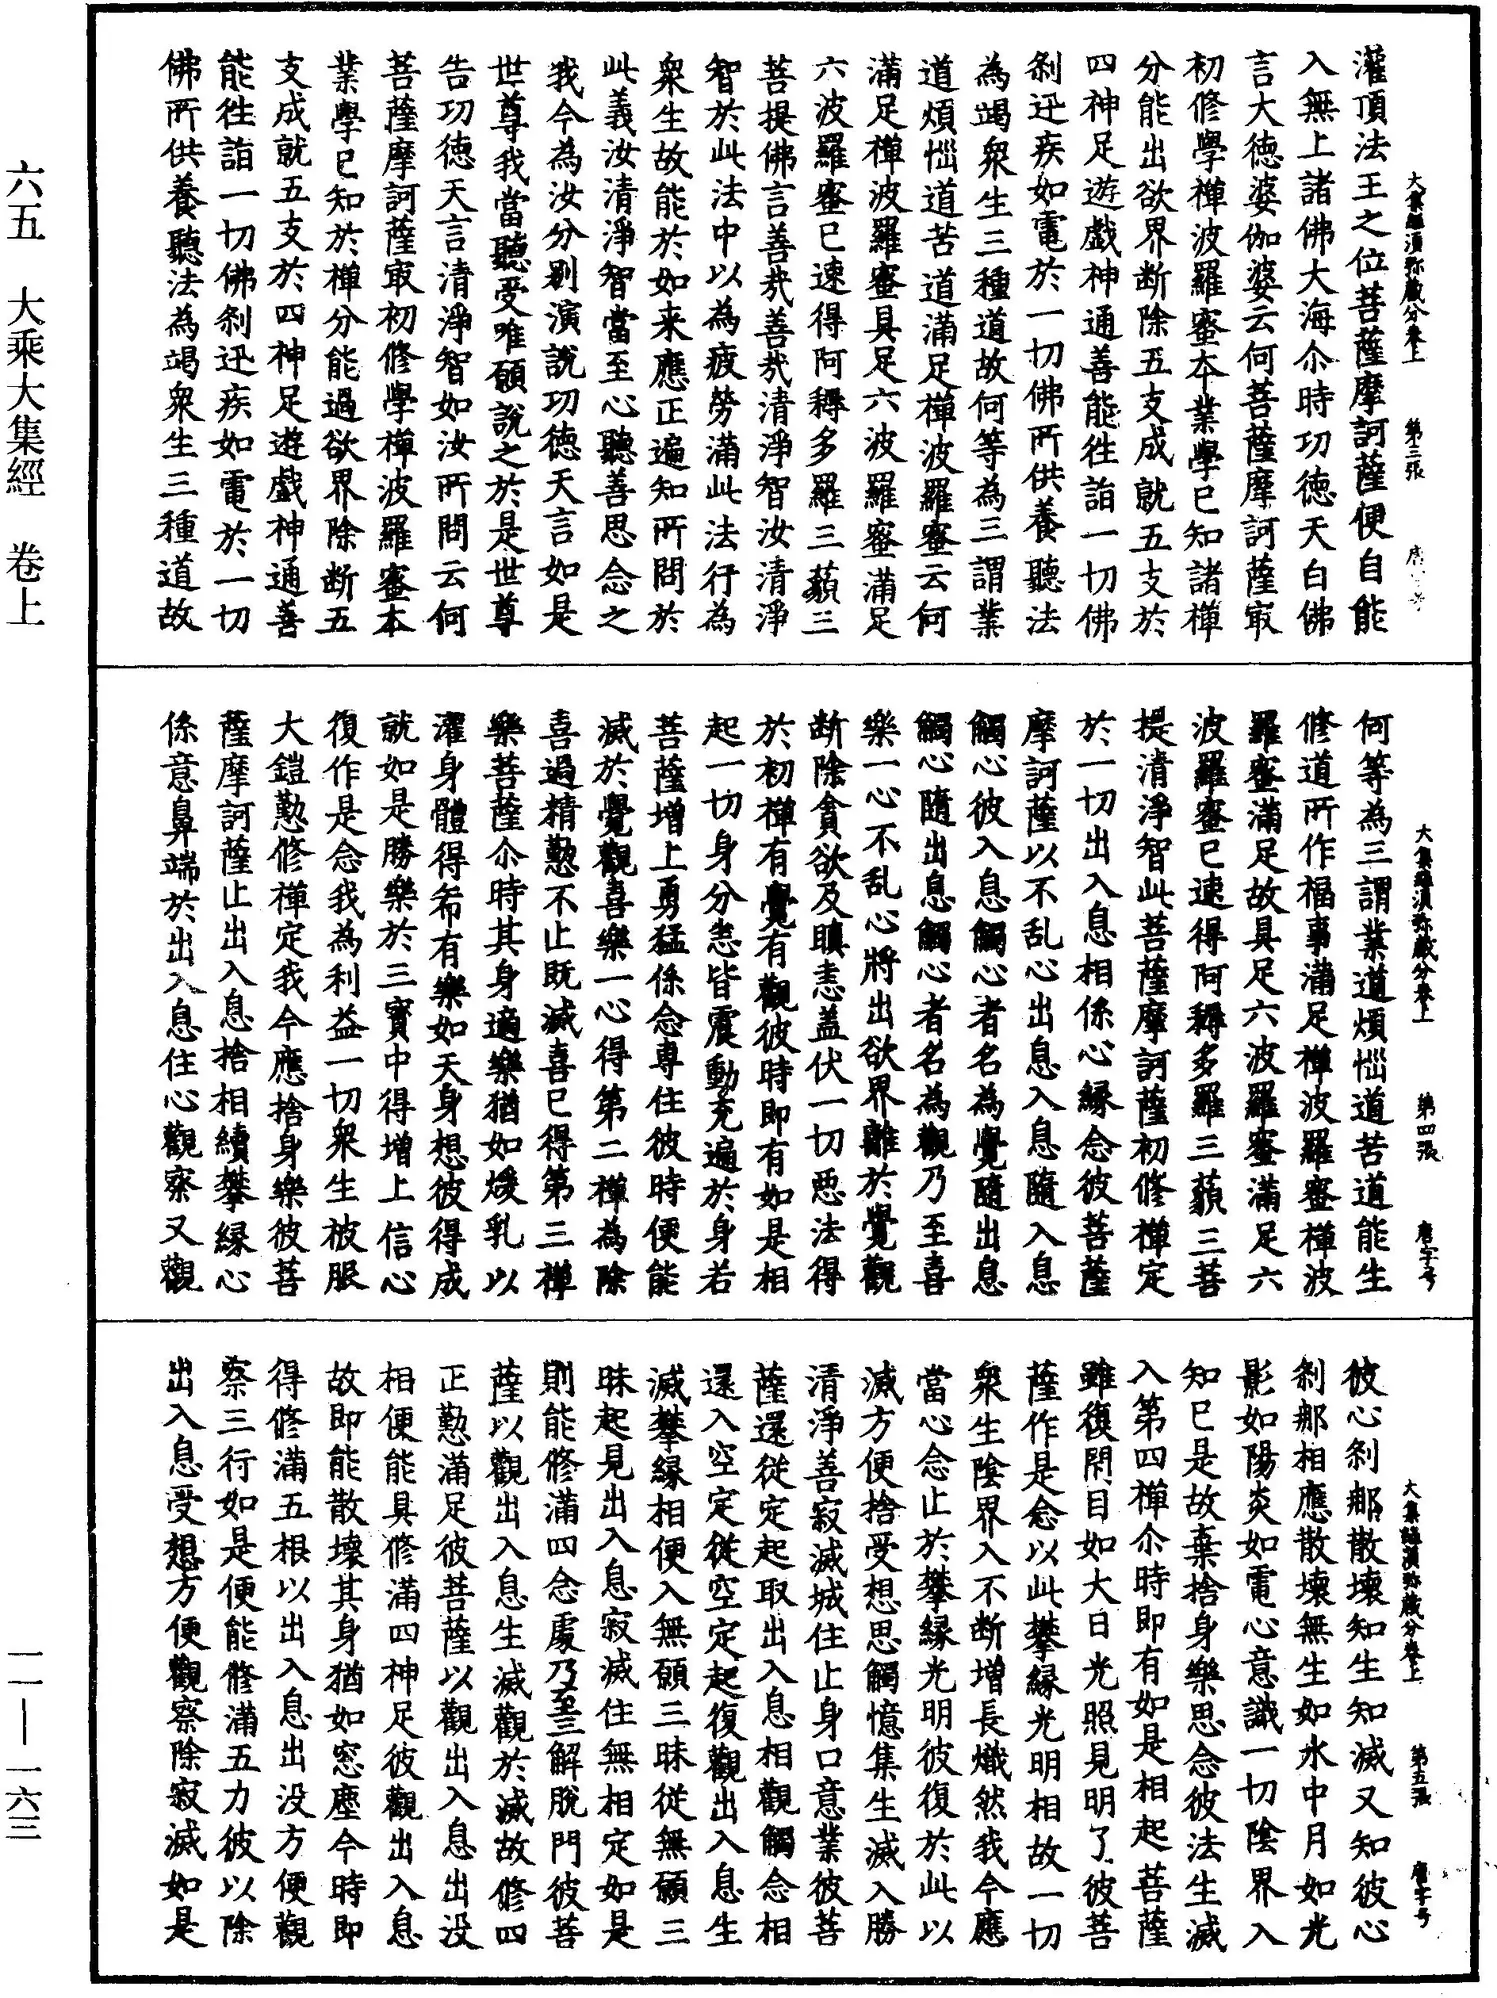 灌頂法王之位菩薩摩訶薩便自能
入無上諸佛大海尒時功徳天白佛
言大徳婆伽婆云何菩薩摩訶薩㝡
初修學禪波羅蜜本業學已知諸禪
分能出欲界断除五支成就五支於
四神足遊戯神通善能往詣一切佛
刹迅疾如電於一切佛所供養聽法
為竭衆生三種道故何等為三謂業
道煩惱道苦道滿足禪波羅蜜云何
滿足禪波羅蜜具足六波羅蜜滿足
六波羅蜜已速得阿耨多羅三藐三
菩提佛言善哉善哉清淨智汝清淨
智於此法中以為疲勞滿此法行為
衆生故能於如来應正遍知所問於
此義汝清淨智當至心聽善思念之
我今為汝分別演說功徳天言如是
世尊我當聽受唯願說之於是世尊
告功徳天言清淨智如汝所問云何
菩薩摩訶薩㝡初修學禪波羅蜜本
業學已知於禪分能過欲界除断五
支成就五支於四神足遊戯神通善
能往詣一切佛刹迅疾如電於一切
佛所供養聽法為竭衆生三種道故
大集經須弥蔵分卷上 第三張
何等為三謂業道煩惱道苦道能生
修道所作福事滿足禪波羅蜜禪波
羅蜜滿足故具足六波羅蜜滿足六
波羅蜜已速得阿耨多羅三藐三菩
提清淨智此菩薩摩訶薩初修禪定
於一切出入息相係心緣念彼菩薩
摩訶薩以不乱心出息入息隨入息
觸心彼入息觸心者名為覺隨出息
觸心隨出息觸心者名為觀乃至喜
樂一心不乱心將出欲界離於覺觀
断除貪欲及瞋恚盖伏一切惡法得
於初禪有覺有觀彼時即有如是相
起一切身分悉皆震動充遍於身若
菩薩增上勇猛係念專住彼時便能
滅於覺觀喜樂一心得第二禪為除
喜過精懃不止既滅喜已得第三禪
樂菩薩尒時其身適樂猶如煖乳以
濯身體得希有樂如天身想彼得成
就如是勝樂於三寶中得增上信心
復作是念我為利益一切衆生被服
大鎧懃修禪定我今應捨身樂彼菩
薩摩訶薩止出入息捨相續攀緣心
係意鼻端於出入息住心觀察又觀
大集經須弥蔵分卷上 第四張 唐字号
彼心刹那散壞知生知滅又知彼心
刹那相應散壞無生如水中月如光
影如陽炎如電心意識一切陰界入
知已是故棄捨身樂思念彼法生滅
入第四禪尒時即有如是相起菩薩
雖復閇目如大日光照見明了彼菩
薩作是念以此攀緣光明相故一切
衆生陰界入不断增長熾然我今應
當心念止於攀緣光明彼復於此以
滅方便捨受想思觸憶集生滅入勝
清淨善寂滅城住止身口意業彼菩
薩還從定起取出入息相觀觸念相
還入空定從空定起復觀出入息生
滅攀緣相便入無願三昧從無願三
昧起見出入息寂滅住無相定如是
則能修滿四念處乃至三解脫門彼菩
薩以觀出入息生滅觀於滅故修四
正懃滿足彼菩薩以觀出入息出没
相便能具修滿四神足彼觀出入息
故即能散壞其身猶如窓塵今時即
得修滿五根以出入息出没方便觀
察三行如是便能修滿五力彼以除
出入息受想方便觀察除寂滅如是
大集經須弥蔵分卷上 第五張 唐字号
六五 大乘大集經 卷上
一一—一六三